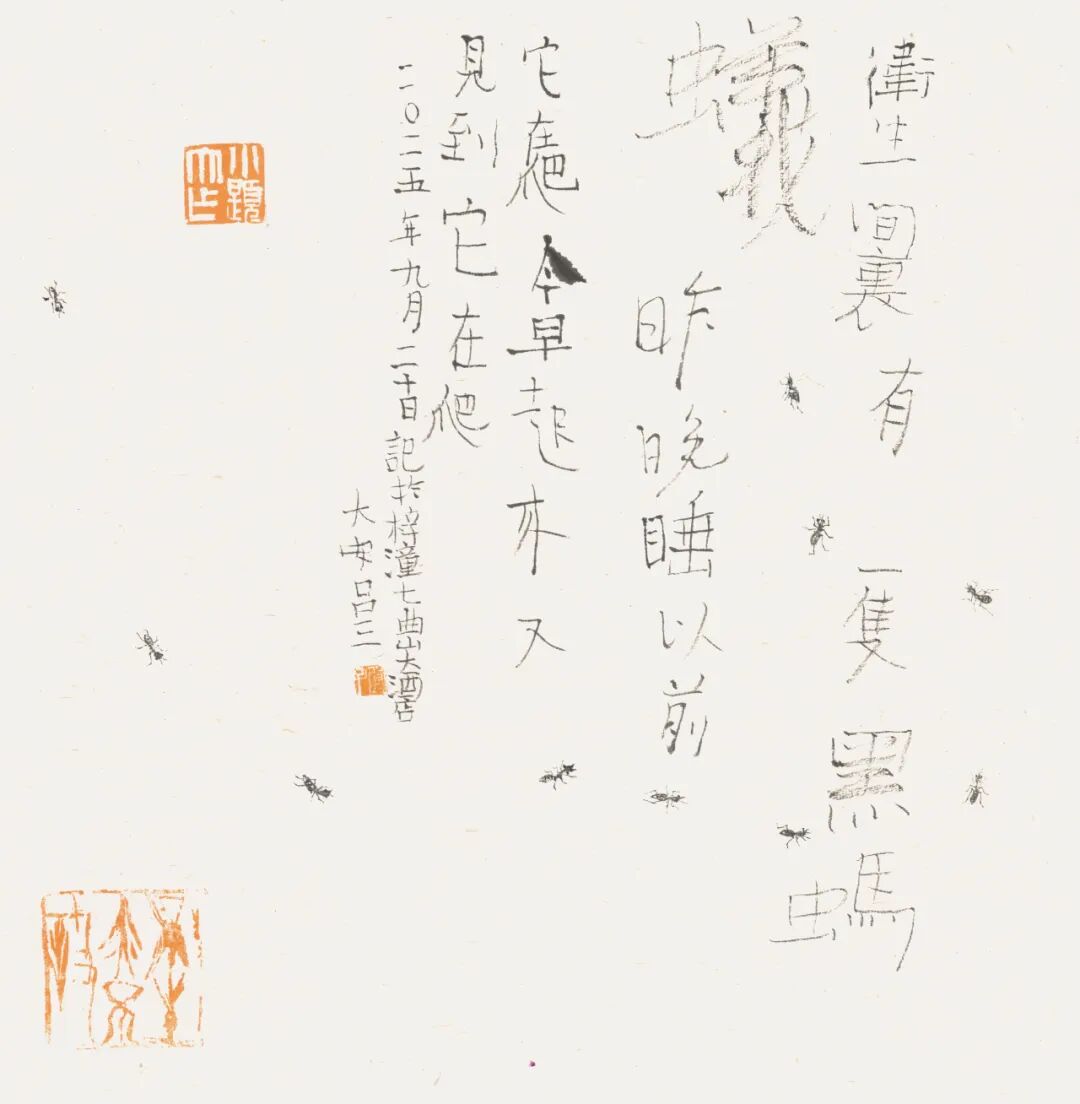 衛生間裏有一隻黑螞
蟻昨晚睡以前
它在爬今早起来又
見到它在爬
二〇二五年九月二十日記於梓潼七曲山大酒店
大安呂三
小題大作